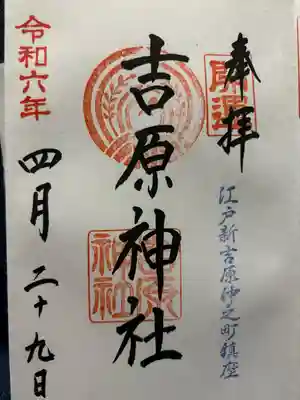 奉拝
開運
江戸新吉原仲之町鎮座
吉原神社
吉原
神社
令和六年
四月二十九日